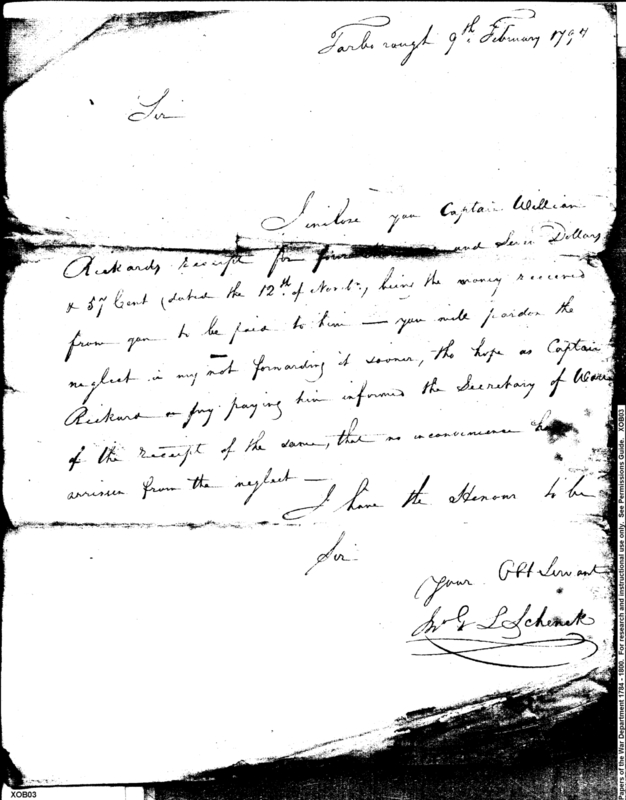 Tarborough 9th February 1797
Sir
I inclose you Captain William
Rickards receipt for and Seven Dollars
& 57 Cent (dated the 12th of Novbr,) being the money received
from you to be paid to him — you will pardon the
neglect in my not forwarding it sooner, tho hope as Captain
Rickard on my paying him informed the Secretary of War
of the receipt of the same, that no inconvenience has
arrisen from the neglect —
I have the Honour to be
Sir
Your Obt Servant
L Schenck
XOB03
Papers of the War Department 1784 - 1800. For research and instructional use only. See Permissions Guide. XOB03